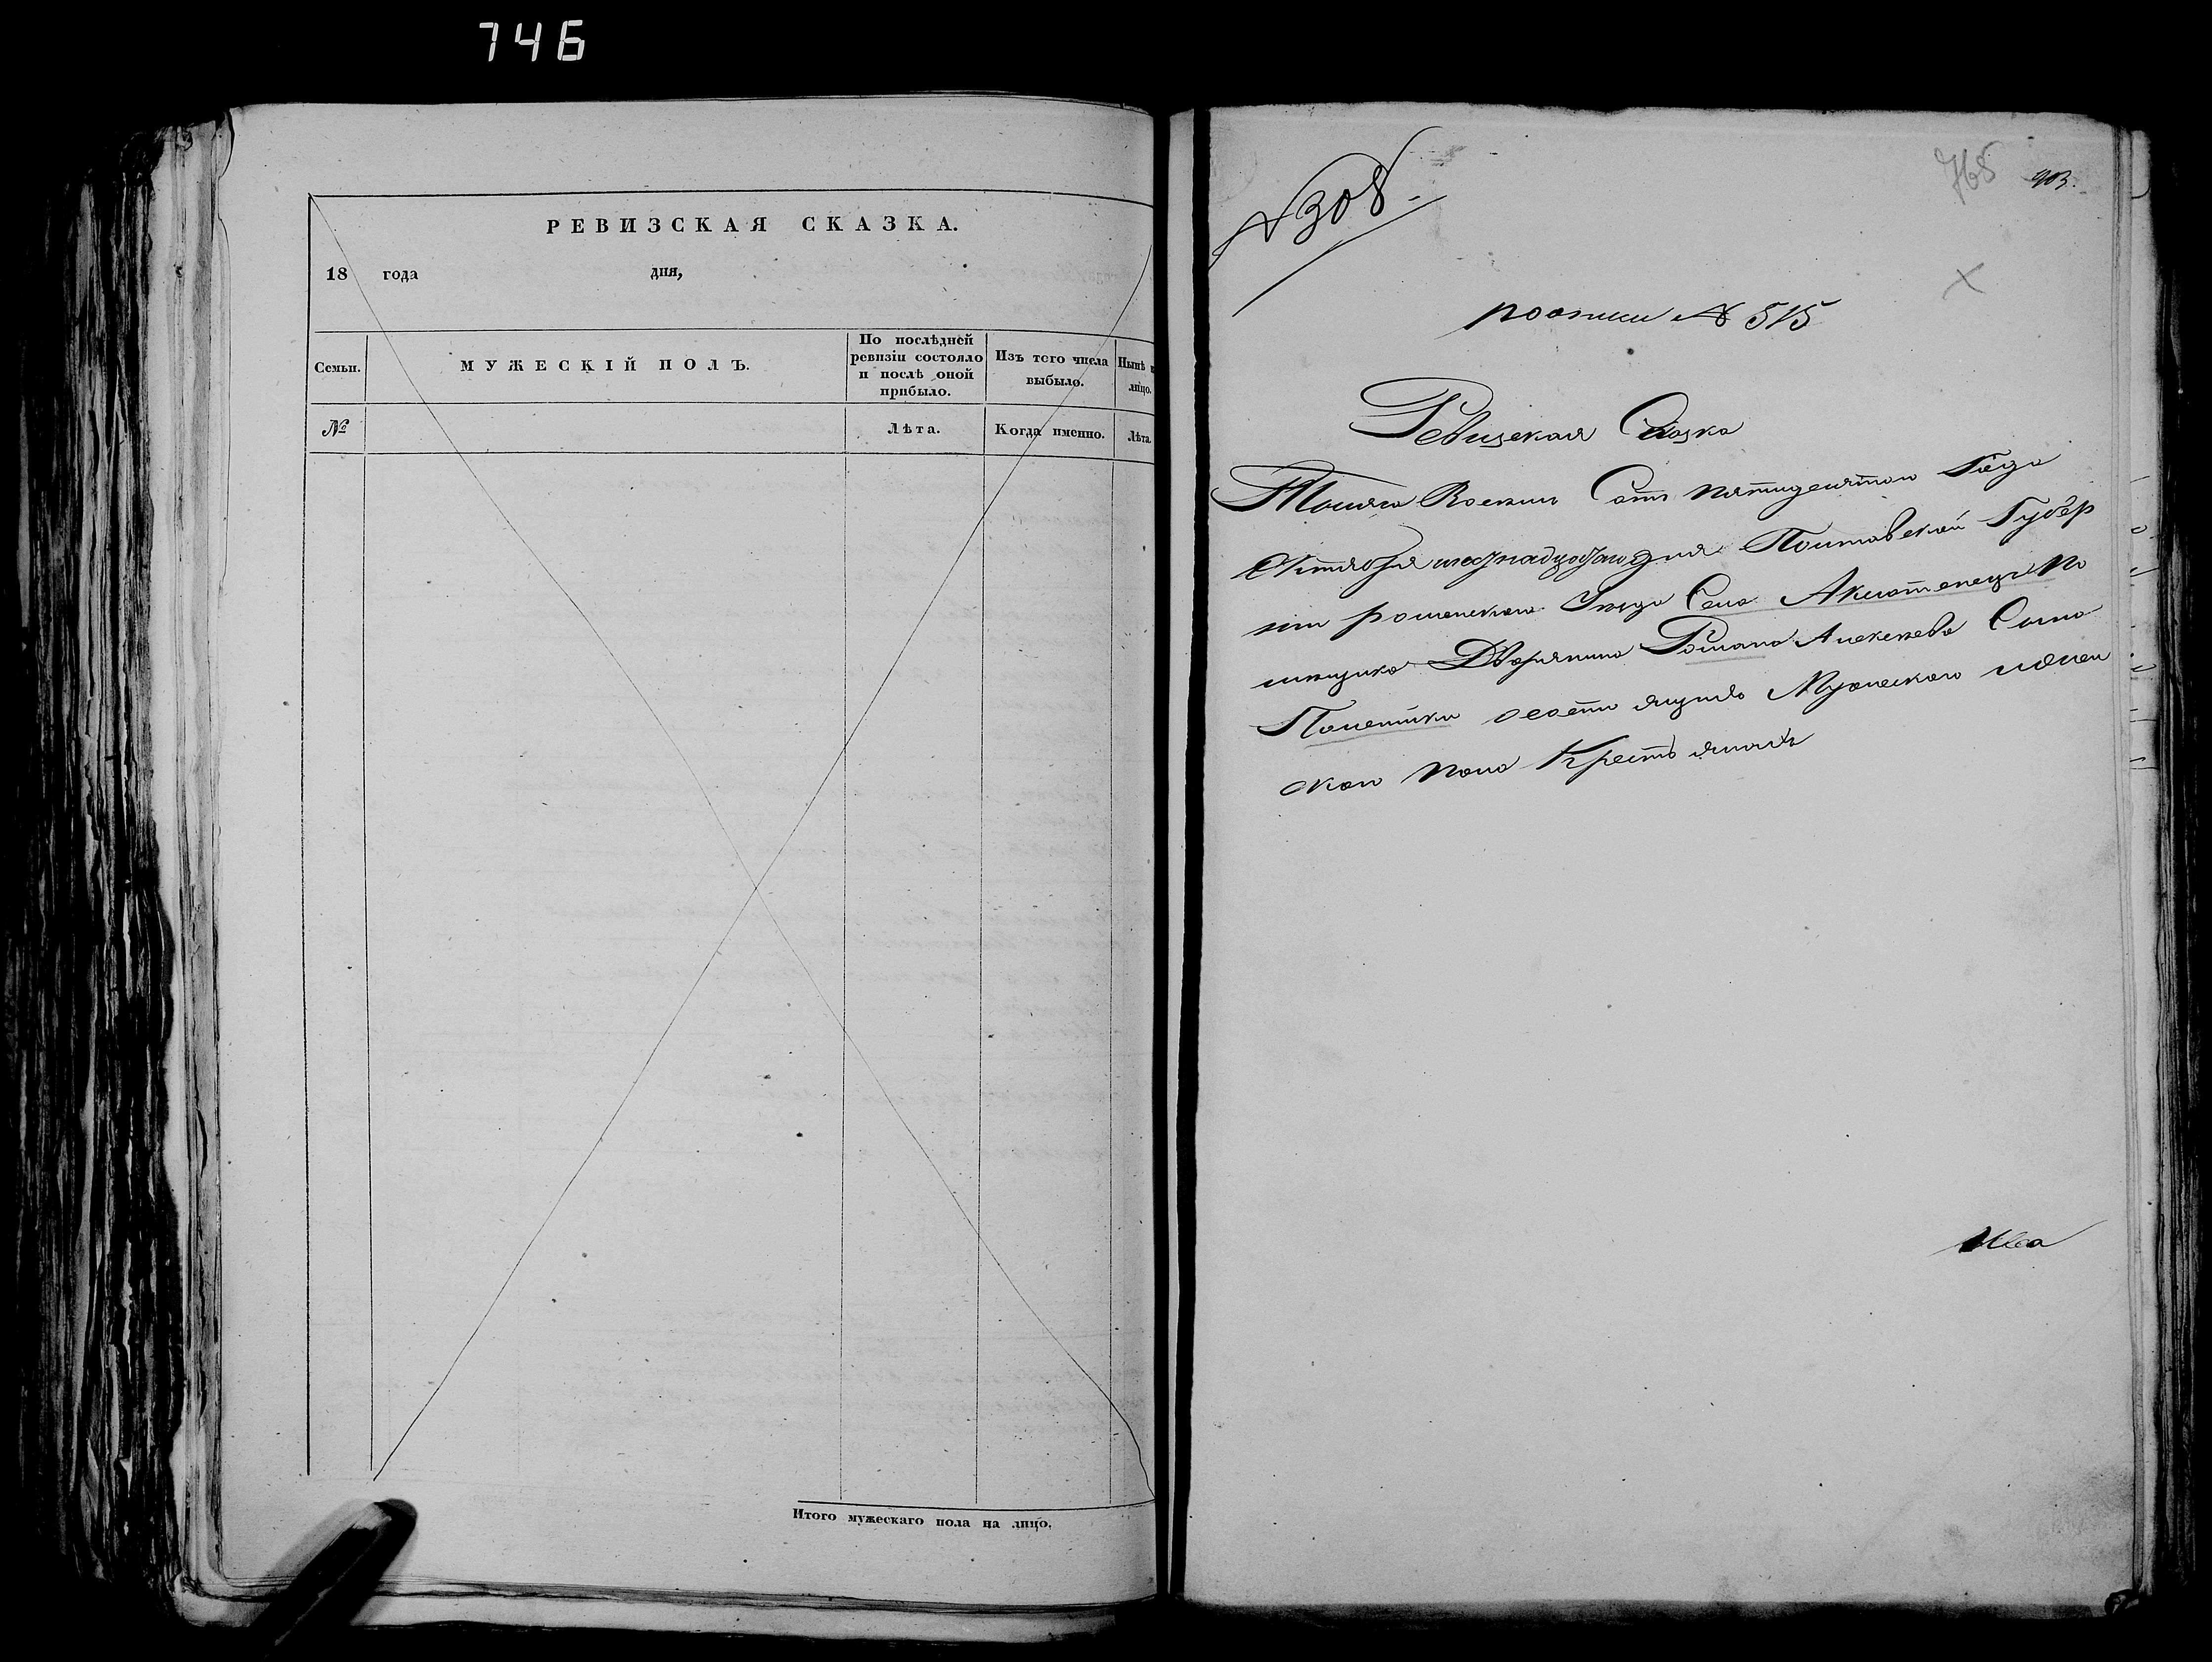 746
РЕВИЗСКАЯ СКАЗКА.
18 года дня,
Семьи.
МУЖЕСКІЙ ПОЛЪ.
По послѣдней ревизіи состояло и послѣ оной прибыло.
Изъ того числа выбыло.
Нынѣ
лицо.
№
Лѣта.
Когда именно.
Лѣта.
Итого мужескаго пола на лицо.
№ 308.
765 903.
росписи № 515
Ревизская Сказка
Тысяча Восемь Сотъ пятидесятого Года
Октября шестнадцатого дня Полтавской Губер
ніи роменского Уезда Села Аксютенецъ По
мещика Дворянина Романа Алексеева Сына
Полетики о Мужеского
ского пола Крестьянахъ